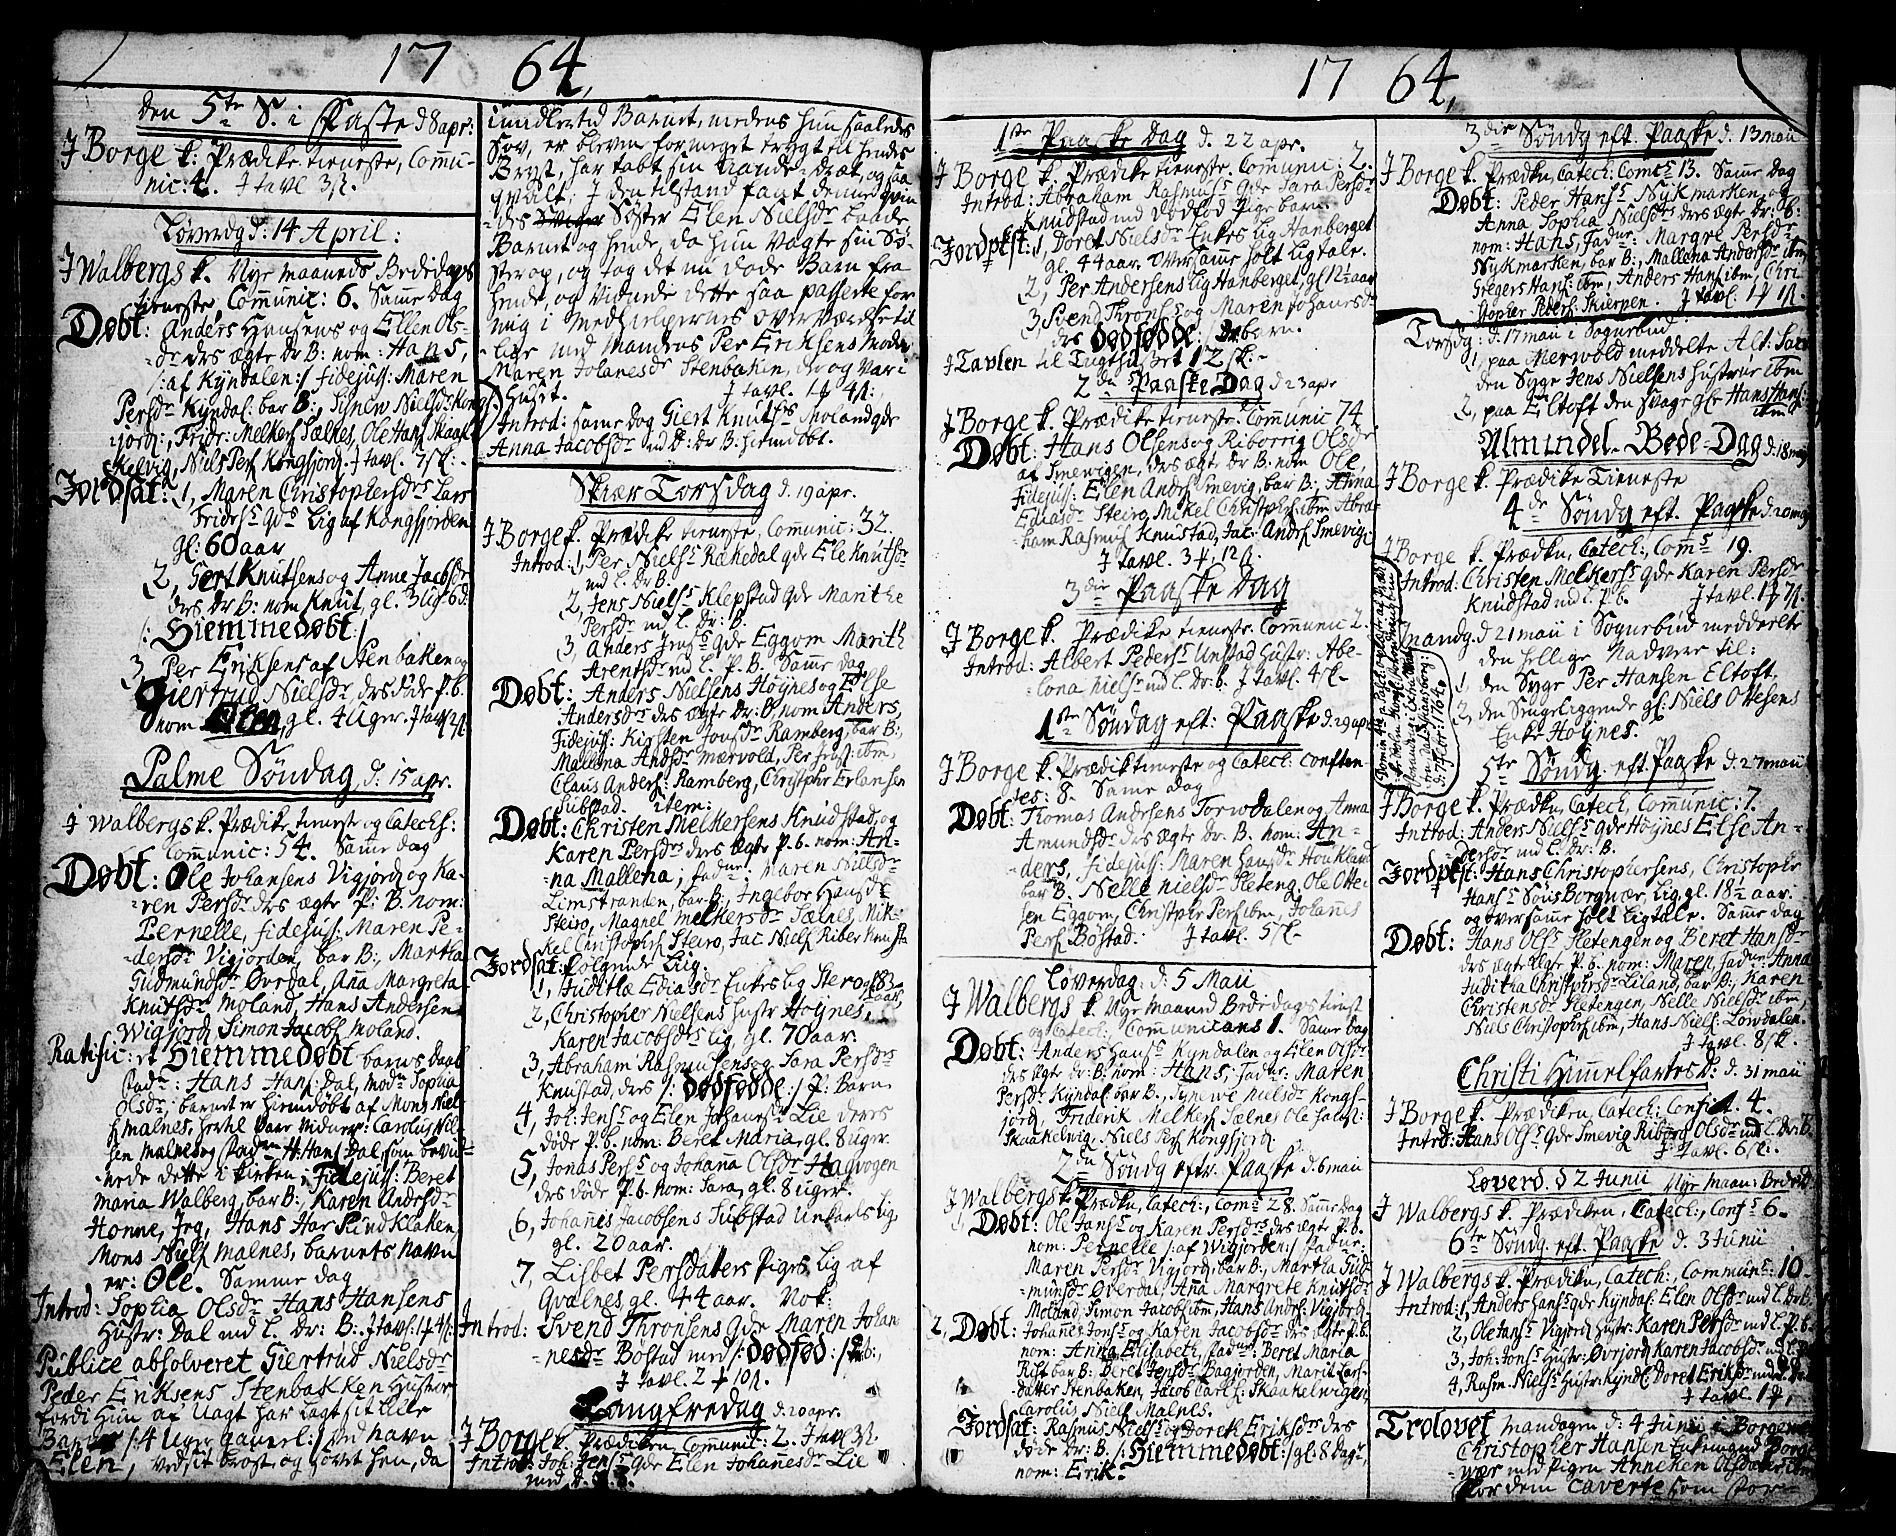 17 64,
den 5te S. i Faste d 8 apr:
J Borge k. Prædike tieneste, Comu-
nic: 4. J tavl 3 s.
Løverdg d: 14 April:
J Walbergs k. Nye maaneds Bededags
tieneste, Comunic: 6. Samme Dag
Døbt: Anders Hansens og Ellen Ols-
dr drs ægte Dr B: nom: Hans,
/: af Kyndalen :/ fidejuss: Maren
Persdr Kyndal: bar B:, Sÿnew Nielsdr Kongs-
fjord:, Fridr: Melkers Sælnes, Ole Hans Skaal-
kelvig, Niels Pers Kongsjord. J tavl. 7 s.
Jordsat: 1, Maren Christophersdr Lars
Fridrs: gds Lig af Kongsfjorden
gl: 60 aar
2, Gert Knutsens og Anne Jacobsdr
ders Dr B: nom Knut, gl. 3 Ug: 6 d.
/: Hiemmedøbt :/
3, Per Eriksens af Stenbaken og
Giertrud Nielsdr drs døde P. b.
nom Elen, gl. 4 Uger. J tavl 2 s.
Palme Søndag, d. 15 apr.
J Walbergs k. Prædike tieneste og Catechs:
Comunic: 54. Samme dag
Døbt: Ole Johansens Vigjord og Ka-
ren Persdr drs ægte P: B. nom:
Pernelle, fidejuss: Maren Pe-
dersdr Vigjorden, bar B:, Martha
Gudmundsdr Øverdal, Ana Margreta
Knutsdr Moland, Hans Andersen
Wigjord, Simon Jacobs Moland.
Ratific: et Hiemmedøbt barns Daab
fadr: Hans Hans: Dal, modr Sophia
Olsdr: barnet er hiemdøbt af Mons Niel-
s Malnes, hvortil vaar vidner: Carolus Niel-
sen Malnes og Hans Dal, som bevid-
nede dette i kirken, Fidejuss: Beret
maria Walberg, bar B:, Karen Andrsdr
Honne, Jeg, Hans Hars Sund klaken,
Mons Niels Malnes, barnets navn
er: Ole. Samme dag
Introd: Sophia Olsdr Hans Hansens
Hustr: Dal med l. Dr: B: J tavl. 1 # 4 s.
Publice absolveret Giertrud Nielsdr
Peder Eriksens Stenbakken Hustro
fordi Hun af Uagt har lagt sit lille
Barn /: 4 Uger gamel :/ ved navn
Elen, ved sit brøst, og sovet hen, da
imidlertid Barnet, medens hun saaledes
sov, er bleven for meget trygt til hendes
Bryst, har tabt sin Aande-dræt, og saa
qvalt; J den tilstand fant denne qvin-
des Søster Elen Nielsdr baade
Barnet og hende, da hun vagte sin Sø-
ster op, og tog det nu døde Barn fra
hende, og Vidnede dette saa passerte for
mig i Medhielpernes overværelse til
lige med Mandens Per Eriksens Moder
Maren Johanesdr Stenbaken, der og var i
Huset. J tavl. 1 # 4 s:
Introd: samme dag Giert Knuts Moland gde
Anna Jacobsdr md l: Dr B: hiemdøbt.
Skiær Torsdag d. 19 apr.
J Borge k. Prædike tieneste, Comunic: 32.
Introd: 1, Per Niels Rakedal gde Ele Knutsdr
md l. Dr B.
2, Jens Niels Klepstad gde Marithe
Persdr md l. dr: B.
3, Anders Jens gde Eggom Marith
Arentsdr md l. P. B. Samme dag
Døbt: Anders Nielsens Høynes og Else
Andersdrs des ægte Dr: B nom Anders,
Fidejuss: Kirsten Jonsdr Ramberg, bar B:
Mallena Andsdr Mærvold, Per Jens: ibm,
Claus Anders: Ramberg, Christopher Erlansen
Substad. item:
Døbt: Christen Melkersens Knudstad, og
Karen Persdrs ders ægte P. b. nom: An-
na Mallena; Maren Nielsdr
Limstranden, bar B:, Ingebor Hansdr
Steiro, Magnel Melkersdr Sælnes, Mik-
kel Christophs Steiro, Jac Niels Riber Knusta
Jordsat: følgende Liig
1, Juditha Ediasdr Enkes lig Stero gl 83 aar
2, Christopher Nielsens hustr Høynes,
Karen Jacobsdrs lig gl. 70 aar.
3, Abraham Rasmusens og Sara Persdrs
Knustad, ders /: dødfødde :/ P: Barn
4, Joh: Jens og Elen Johansdr Lie ders
døde P. b. nom: Beret Maria, gl. 8 uger.
5, Jonas Pers og Johanna Olsdr Hagvogen
drs døde P. b. nom: Sara, gl. 8 uger.
6, Johanes Jacobsens Substad Unkarls lig
gl. 20 aar.
7, Lisbet Persdatters Piges Lig af
Qvalnes gl. 44 aar. Nok:
Introd: Svend Thronsens gde Maren Johan-
nesdr Bøstad med /: dødfød :/
J tavl. 2 # 10 s.
Langfredag d. 20 apr.
J Borge k. Prædiken, Comunic: 2. J tavl 3 s.
Introd: Joh: Jens gde Elen Johanesdr Lie
med
17 64,
1ste Paaske Dag d. 22 apr.
J Borge k. Prædike tieneste. Comunic: 2.
Introd: Abraham Rasmus gde Sara Persdr
Knudstad md Dødfød Pige barn.
Jordpkst: 1, Doret Nielsdr Enkes Lig Hanberget
gl. 44 aar. Over samme holt Ligtale.
2, Per Andersens Lig Hanberget, gl 12 aar
3 Svend Throns og Maren Johansdr
ds dødfødde barn.
J Tavlen til Tugthuset 12 s.
2den Paaske Dag d 23 apr
J Borge k. Prædike tieneste. Comunic 74
Døbt: Hans Olsens og Riborrig Olsdr
af Smevigen, drs ægt. Dr B: nom Ole,
Fidejuss: Elen Andrs Smevig, bar B:, Anna
Ediasdr Steiro, Mikel Christophs ibm Abra-
ham Rasmus Knustad, Jac: Andrs Smevig
J tavl. 3 #, 12 s.
3die Paaske Dag
J Borge k. Prædike tieneste. Comunic 2.
Introd: Albert Peders Unstad hustr: Abe-
lona Niels md l. dr: b. J tavl. 4 s.
1ste Søndag eft: Paaske d. 29 apr
J Borge k. Prædiktieneste og Catech: Confiten-
tes: 8. Samme dag
Døbt: Thomas Andersens Torwdalen og Anna
Amundsdr drs ægte dr. B. nom: An-
ders, fidejuss: Maren Hansdr Houkland
bar B:, Nelle Nielsdr Sleteng, Ole Otte-
sen Eggom, Christpher Pers ibm, Johanes
Pers Bøstad. J tavl. 5 s.
Løverdag d. 5 Maii
J Walbergs k. Nye maaned Bededags tienst
og Catech: Comunicans 1. Samme dag
Døbt: Anders Hans Kyndalen og Elen Olsdr
drs ægte dr: B: nom: Hans, fadr: Maren
Persdr Kyndal bar B., Synewe Nielsdr Kongs-
jord, Friderik Melkers Sælnes Ole Hans:
Skaakelvig, Niels Pers Kongsjord.
2den Søndg eftr. Paaske d. 6 maii
J Walbergs k. Prædkn, Catech:, Coms 28. Samme dag
1, Døbt: Ole Jans og Karen Persdrs drs ægte P. b.
nom: Pernelle /: af Wigjorden :/
Maren Persdr Vigjord, bar B:, Martha Gud-
mundsdr Øverdal, Ana Margrete Knutsdr
Moland, Simon Jacobs ibm, Hans Andrs: Vigjord.
2, Døbt: Johanes Jons og Karen Jacobsdr drs ægte P. b.
nom: Anna Elisabeth, Beret Maria
Rist bar B: Beret Jensdr Bagjorden, Marit Lars-
datter Stenbaken, Jacob Carls: Skaakelvigen,
Carolus Niels Malnes.
Jordsat: Rasmus Niels og Doreth Eriksdrs drs
døde Dr: B. /: Hiemmedøbt :/ gl: 8 dage
nom: Erik.
3die Søndg eft. Paaske d. 13 maii
J Borge k. Prædkn, Catech: Coms 13. Samme dag
Døbt: Peder Hans Nykmarken, og
Anna Sophia Nielsdrs drs ægte dr: B:
nom: Hans, fadr: Margre Persdr
Nykmarken, bar B:, Mallena Andersdr ibm
Gregers Hans: ibm, Anders Hans ibm, Chri-
stopher Peders: Skierpen. J tavl. 1 # 1 s.
Torsdg: d. 17 maii i Sognebud:
1, paa Merwold meddelte Alt: Sacr:
den Syge Jens Nielsens Hustrue ibm
2, paa Eltoft den svage gle Hans Hans:
ibm
Almindel-Bede-Dag d. 18 maii
J Borge k. Prædike Tieneste
4de Søndg eft. Paaske d 20 maii
J Borge k. Prædkn, Catech:, Coms 19.
Introd: Christen Melkers gde Karen Persdr
Knudstad md l. P. b. J tavl. 1 # 7 s.
Mandg. d. 21 maii i Sognebud meddeelte
den hellige Nadvere til:
1, den Syge Per Hansen Eltoft,
2, den Sengeliggende gl: Niels Ottesens
Enke Høynes.
5te Søndg. eft. Paaske d. 27 maii
J Borge k. Prædkn, Catech, Comunic: 7.
Introd: Anders Niels gde Høynes Else An-
dersdr md l. Dr: B.
Jordpkst: Hans Christophersens, Christopher
Hans Søns Borgvær Lig, gl. 18½ aar.
og over samme holt Ligtale. Samme dag
Døbt: Hans Ols Sletengen og Beret Hansdr
drs ægte P. b. nom: Maren, Anna
Juditha Christphersdr Liland, bar B:, Karen
Christensdr Sletengen, Nelle Nielsdr ibm,
Niels Christophs ibm, Hans Niels: Løwdalen.
J tavl. 8 s.
Christi Himmelfartes D: d. 31 maii
J Borge k. Prædiken, Catech: Confit. 4.
Introd: Hans Ols gde Smevig Riborg Olsdr md l. Dr: B
J tavl. 6 s.
Løverd. d 2 Junii Nye Maan: Beded:
J Walbergs k. Prædiken, Catech:, Confs 6.
6te Søndg. eft. Paaske d. 3 Junii
J Walbergs k. Prædikn, Catech:, Communs: 10.
Introd: 1, Anders Hans gde Kyndal: Elen Olsdr md l. Dr b.
2, Ole Jans Vigjord hustr: Karen Persdr md l. P. b.
3, Joh: Jons Hustr: Øvrjord Karen Jacobsdr md l.
4, Rasm. Niels Hustr: Kyndl. Doret Eriksdr md
J tavl. 1 #,
Trolovet Mandagen d: 4 Junii i Borge
Christopher Hansen Enkemand Borge-
vær med Pigen Anneken Olsdater ibm
For dem Caverte som For-